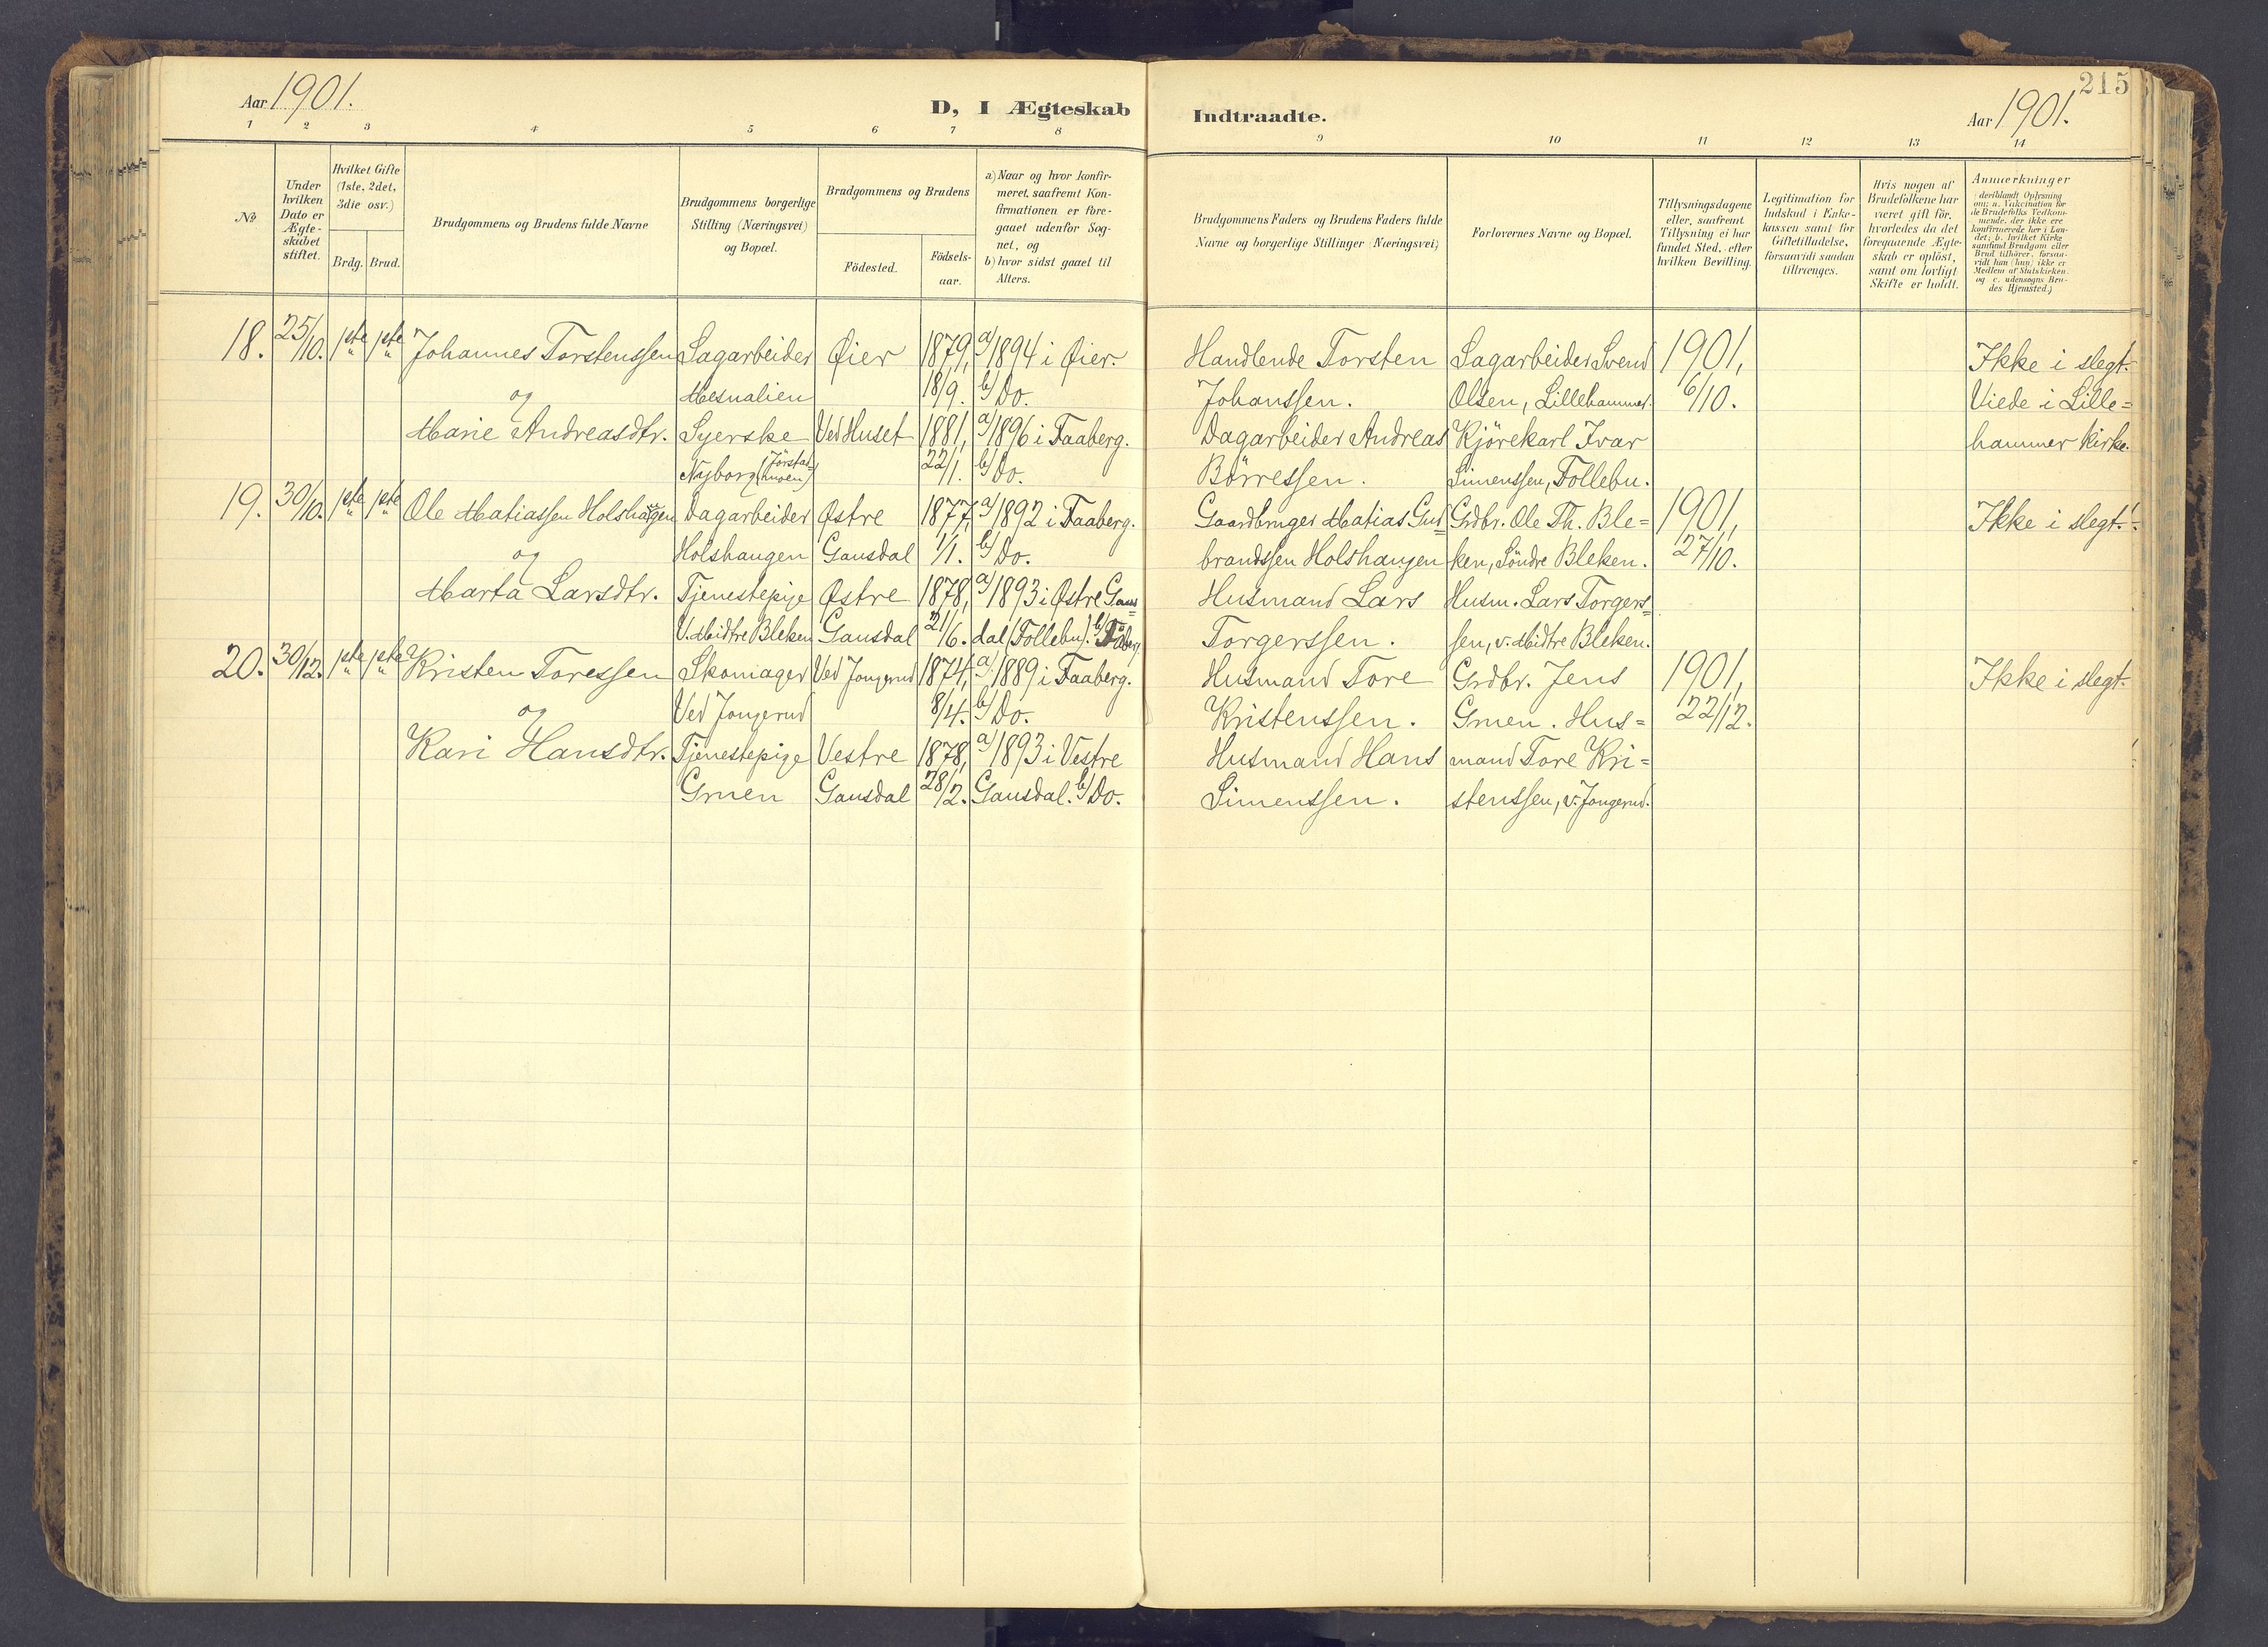 Aar 1901.
D, I Ægteskab
Indtraadte.
Aar 1901.
215
1 2 3 4 5 6 7 8 9 10 11 12 13 14
No
Under hvilken Dato er Ægte-skabet stiftet.
Hvilket Gifte (1ste, 2det, 3die osv.)
Brdg. Brud.
Brudgommens og Brudens fulde Navne
Brudgommens borgerlige Stilling (Næringsvei) og Bopæl.
Brudgommens og Brudens
Födested.
Födsels-aar.
a) Naar og hvor konfir-
meret, saafremt Kon-
firmationen er fore-
gaaet udenfor Sog-
net, og
b) hvor sidst gaaet til
Alters.
Brudgommens Faders og Brudens Faders fulde
Navne og borgerlige Stillinger (Næringsvei)
Forlovernes Navne og Bopæl.
Tillysningsdagene
eller, saafremt
Tillysning ei har
fundet Sted, efter
hvilken Bevilling.
Legitimation for
Indskud i Enke-
kassen samt for
Giftetilladelse,
forsaavidt saadan
tiltrænges.
Hvis nogen af
Brudefolkene har
været gift för,
hvorledes da det
foregaaende Ægte-
skab er oplöst,
samt om lovligt
Skifte er holdt.
Anmærkninger
(deriblandt Oplysning
om: a. Vakcination for
de Brudefolks Vedkom-
mende, der ikke ere
konfirmerede her i Lan-
det; b. hvilket Kirke
samfund Brudgom eller
Brud tilhörer, forsaa-
vidt han (hun) ikke er
Medlem af Statskirken.
og c. udensogns Bru-
des Hjemsted.)
18. 25/10. 1ste 1ste Johannes Torstenssen Sagarbeider Øier 1879, a/1894 i Øier. Handlende Torsten Sagarbeider Svend 1901, Ikke i slegt.
og Mesnalien 18/9. b/Do. Johanssen. Olsen, Lillehammer. 6/10. Viede i Lille=
Marie Andreasdtr. Syerske Ved Huset 1881, a/1896 i Faaberg. Dagarbeider Andreas Kjörekarl Ivar hammer Kirke.
Nyborg 22/1. b/Do. Börressen. Simenssen, Follebu.
19. 30/10. 1ste 1ste Ole Matiassen Holshaugen Dagarbeider Østre 1877, a/1892 i Faaberg. Gaardbruger Matias Gud= Grdbr. Ole Th. Ble= 1901, Ikke i slegt.
og Holshaugen Gausdal 1/1. b/Do. brandssen Holshaugen ken, Söndre Bleken. 27/10.
Marta Larsdtr. Tjenestepige Østre 1878, a/1893 i Østre Gaus= Husmand Lars Husm. Lars Torgers=
V. Midtre Bleken Gausdal 21/6. dal (Follebu). b/Fåberg. Torgerssen. sen, v. Midtre Bleken.
20. 30/12. 1ste 1ste Kristen Toressen Skomager Ved Jongerud 1874, a/1889 i Faaberg. Husmand Tore Grdbr. Jens 1901, Ikke i slegt.
og Ved Jongerud 8/4. b/Do. Kristenssen. Gruen. Hus= 22/12.
Kari Hansdtr. Tjenestepige Vestre 1878, a/1893 i Vestre Husmand Hans mand Tore Kri=
Gruen Gausdal 28/2. Gausdal. b/Do. Simenssen. stenssen, v. Jongerud.